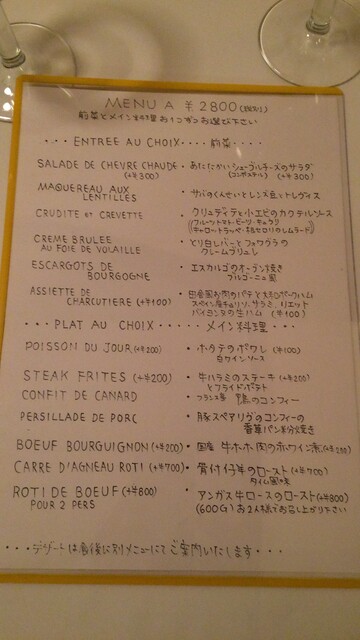 MENU A ¥2800(税別)
前菜とメイン料理お1つずつお選び下さい
・・・ENTREE AU CHOIX・・・・前菜・・・・
SALADE DE CHEVRE CHAUDE (+¥300) ・あたたかいシェーヴルチーズのサラダ (+¥300)
MAQUEREAU AUX LENTILLES ・サバのくんせいとレンズ豆とトレヴィス
CRUDITE et CREVETTE ・クリュディテと小エビのカクテルソース
(フルーツトマト・ビーツ・キュウリ
キャロットラッペ・根セロリのレムラード)
CREME BRULEE AU FOIE DE VOLAILLE ・とり白レバーとフォワグラのクレームブリュレ
ESCARGOTS DE BOURGOGNE ・エスカルゴのオーブン焼き ブルゴーニュ風
ASSIETTE DE CHARCUTIERE (+¥100) ・田舎風お肉のパテと
スペイン産チョリソ、サラミ、リエット
バイヨンヌの生ハム (¥100)
・・・PLAT AU CHOIX・・・・・メイン料理・・・・
POISSON DU JOUR (+¥200) ・ホタテのポワレ (¥100)
白ワインソース
STEAK FRITES (+¥200) ・牛ハラミのステーキ (+¥200)
とフライドポテト
CONFIT DE CANARD ・フランス産 鴨のコンフィー
PERSILLADE DE PORC ・豚スペアリブのコンフィーの
香草パン粉焼き
BOEUF BOURGUIGNON (+¥200) ・国産 牛ホホ肉の赤ワイン煮 (+¥250)
CARRE D'AGNEAU ROTI (+¥700) ・骨付仔羊のロースト (+¥700)
タイム風味
ROTI DE BOEUF (+¥800) ・アンガス牛ロースのロースト (+¥800)
POUR 2 PERS (600G) お2人様でお召し上がり下さい
・・・デザートは食後に別メニューにてご案内いたします・・・